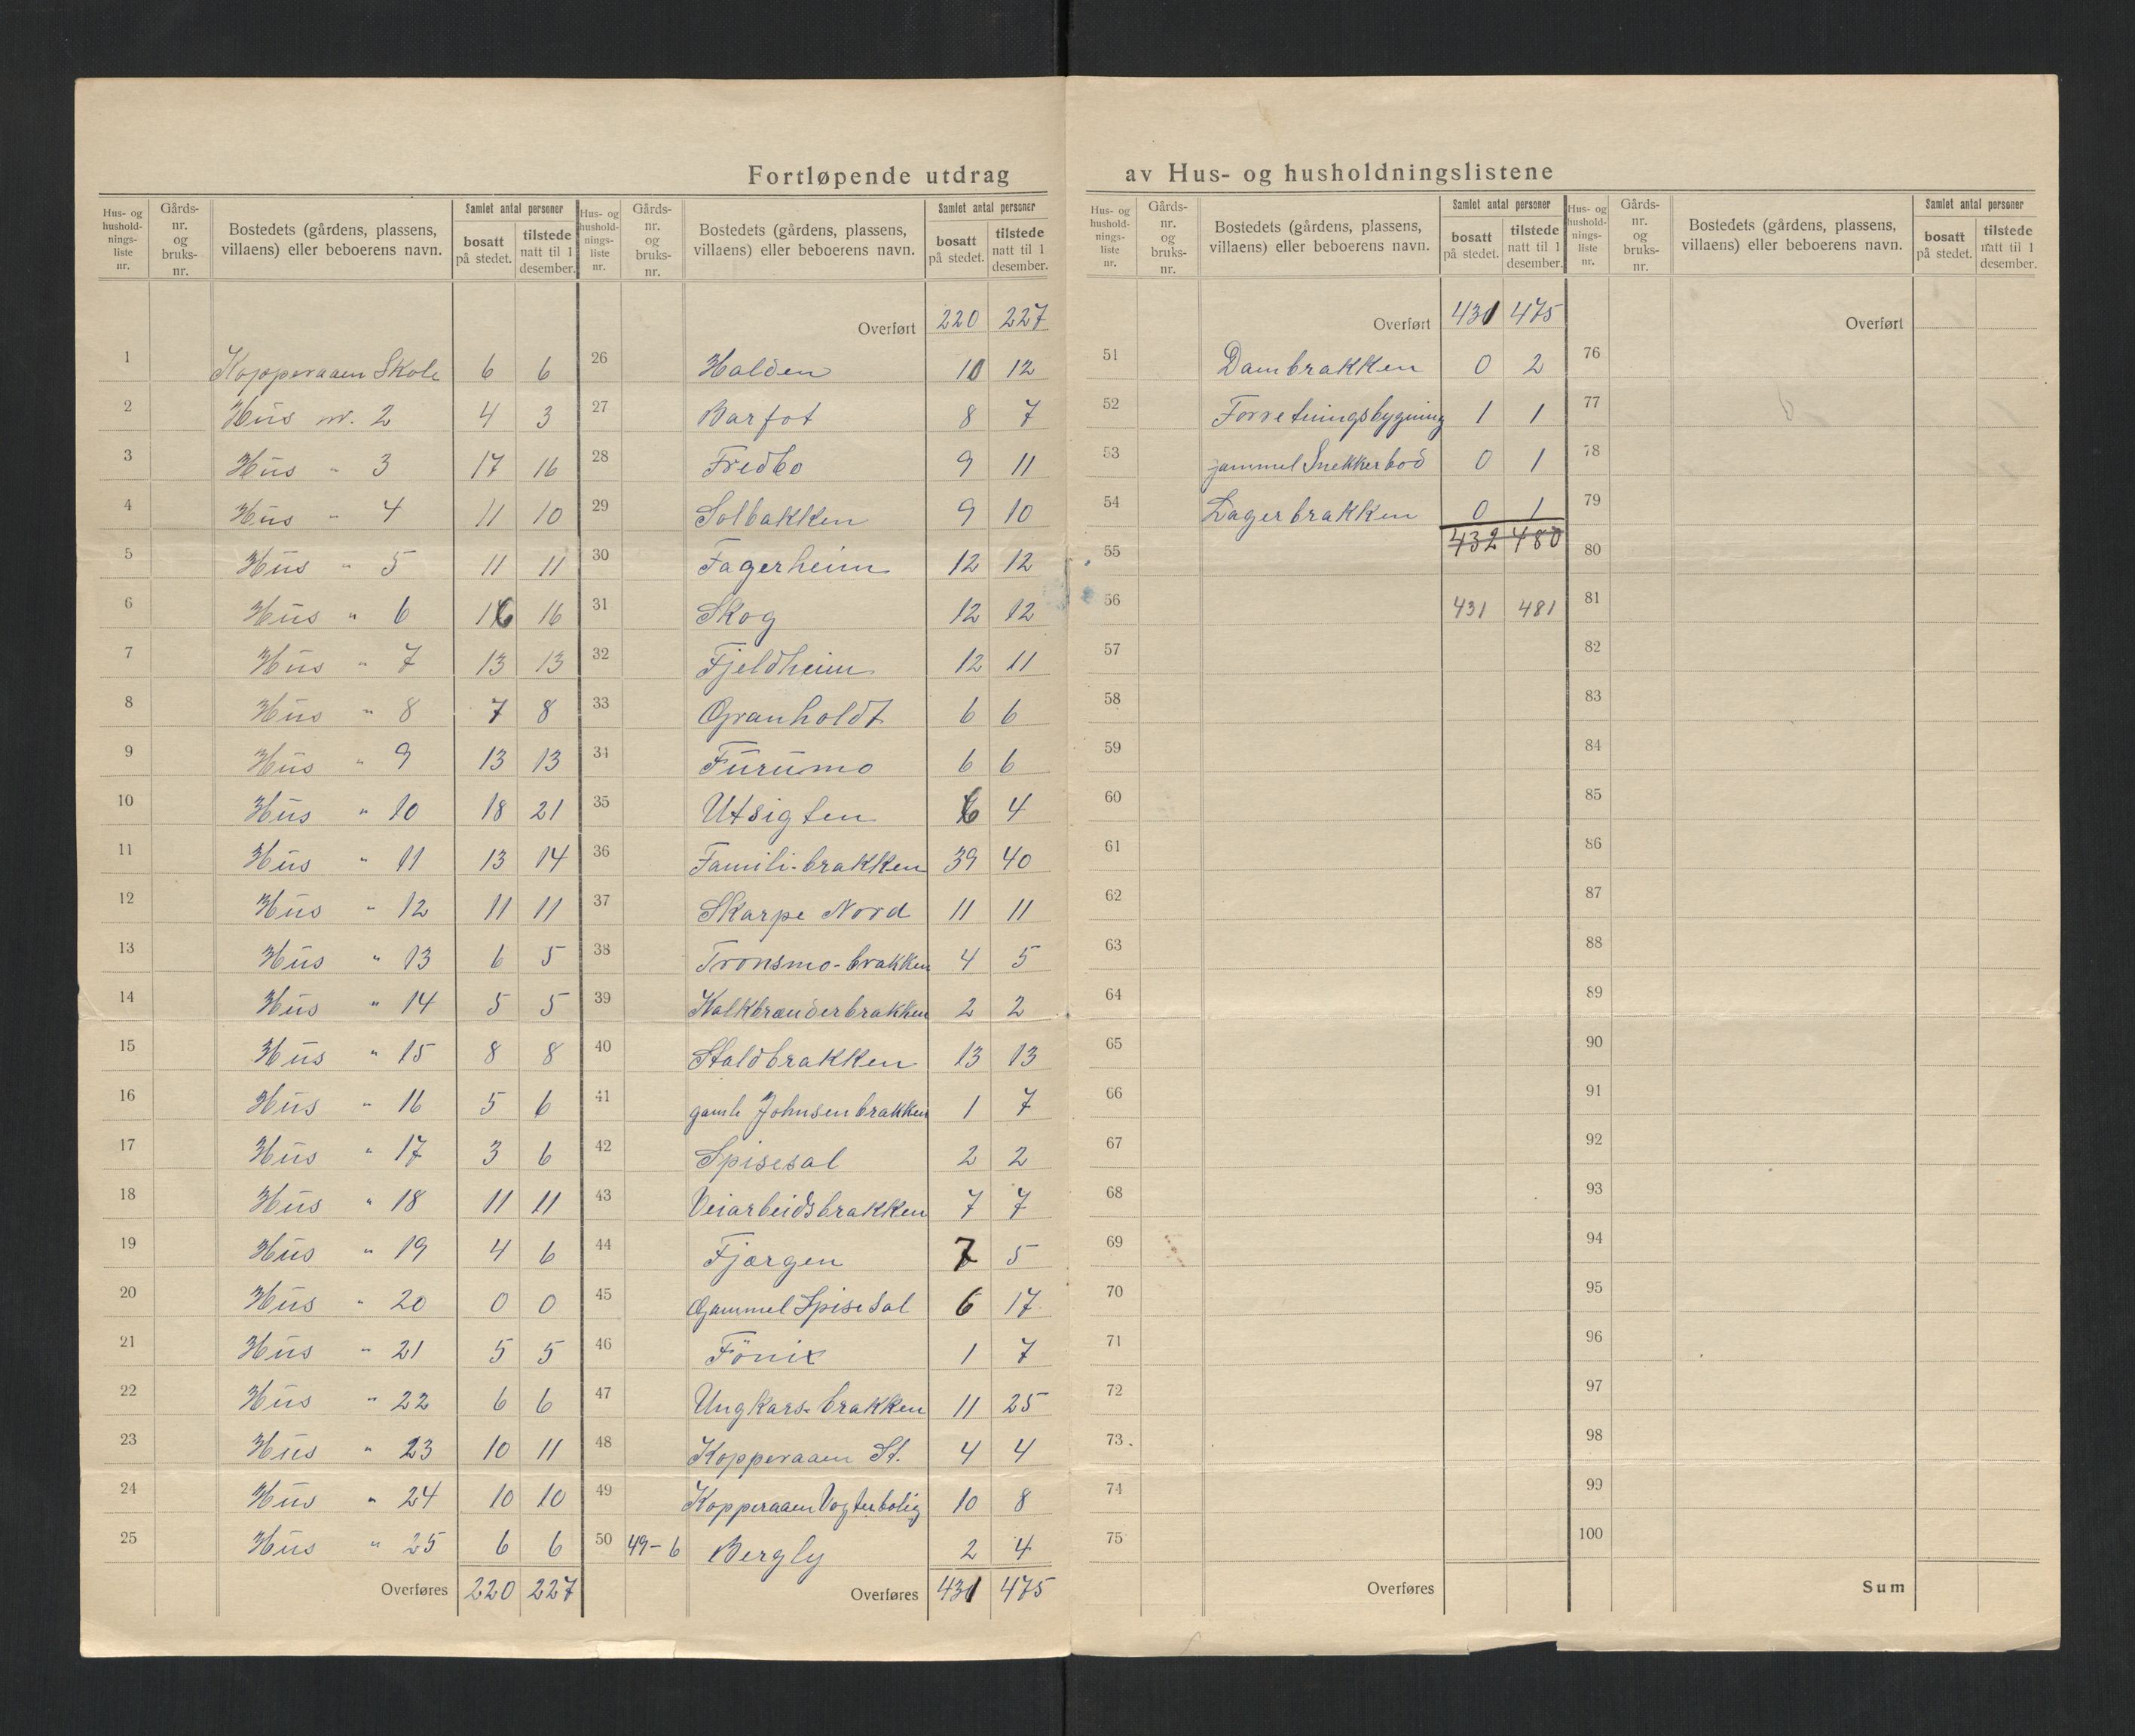 Fortløpende utdrag av Hus- og husholdningslistene
Hus- og hushold-nings-liste nr. Gårds-nr. og bruks-nr. Bostedets (gårdens, plassens, villaens) eller beboerens navn. Samlet antal personer bosatt på stedet. tilstede natt til 1 desember.
1 Kopperaaen Skole 6 6
2 Hus nr. 2 4 3
3 Hus " 3 17 16
4 Hus " 4 11 10
5 Hus " 5 11 11
6 Hus " 6 16 16
7 Hus " 7 13 13
8 Hus " 8 7 8
9 Hus " 9 13 13
10 Hus " 10 18 21
11 Hus " 11 13 14
12 Hus " 12 11 11
13 Hus " 13 6 5
14 Hus " 14 5 5
15 Hus " 15 8 8
16 Hus " 16 5 6
17 Hus " 17 3 6
18 Hus " 18 11 11
19 Hus " 19 4 6
20 Hus " 20 0 0
21 Hus " 21 5 5
22 Hus " 22 6 6
23 Hus " 23 10 11
24 Hus " 24 10 10
25 Hus " 25 6 6
Overføres 220 227
Hus- og hushold-nings-liste nr. Gårds-nr. og bruks-nr. Bostedets (gårdens, plassens, villaens) eller beboerens navn. Samlet antal personer bosatt på stedet. tilstede natt til 1 desember.
Overført 220 227
26 Halden 10 12
27 Barfot 8 7
28 Fredbo 9 11
29 Solbakken 9 10
30 Fagerheim 12 12
31 Skog 12 12
32 Fjeldheim 12 11
33 Granholdt 6 6
34 Furumo 6 6
35 Utsigten 6 4
36 Famili-brakken 39 40
37 Skarpe Nord 11 11
38 Tronsmo-brakken 4 5
39 Kalkbrænderbrakken 2 2
40 Staldbrakken 13 13
41 gamle Johnsenbrakken 1 7
42 Spisesal 2 2
43 Veiarbeidsbrakken 7 7
44 Fjærgen 7 5
45 Gammel Spisesal 6 17
46 Fönix 1 7
47 Ungkars-brakken 11 25
48 Kopperaaen St. 4 4
49 Kopperaaen Vogterbolig 10 8
50 49-6 Bergly 2 4
Overføres 431 475
Hus- og hushold-nings-liste nr. Gårds-nr. og bruks-nr. Bostedets (gårdens, plassens, villaens) eller beboerens navn. Samlet antal personer bosatt på stedet. tilstede natt til 1 desember.
Overført 431 475
51 Dambrakken 0 2
52 Forretningsbygning 1 1
53 gammel Snekkerbod 0 1
54 Lagerbrakken 0 1
55 432 480
56 431 481
57
58
59
60
61
62
63
64
65
66
67
68
69
70
71
72
73
74
75
Overføres
Hus- og hushold-nings-liste nr. Gårds-nr. og bruks-nr. Bostedets (gårdens, plassens, villaens) eller beboerens navn. Samlet antal personer bosatt på stedet. tilstede natt til 1 desember.
Overført
76
77
78
79
80
81
82
83
84
85
86
87
88
89
90
91
92
93
94
95
96
97
98
99
100
Sum